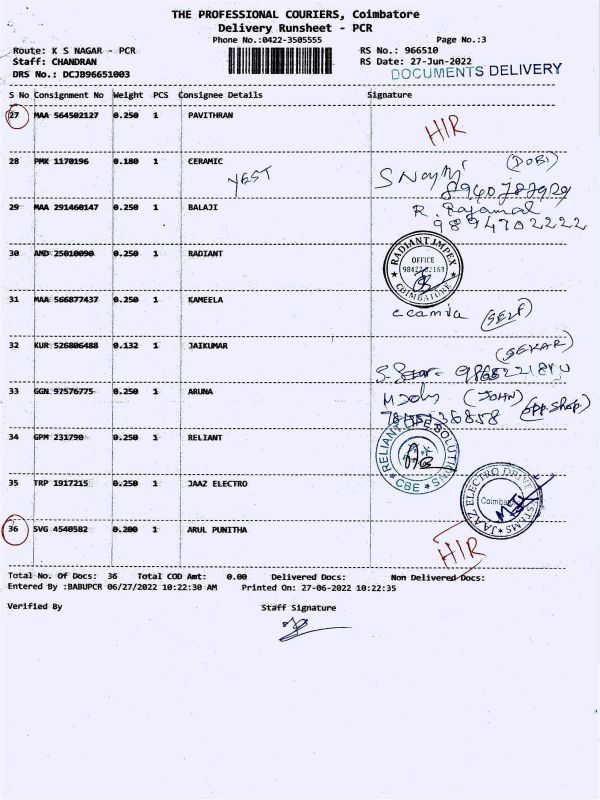 THE PROFESSIONAL COURIERS, Coimbatore
Delivery Runsheet - PCR
Phone No.:0422-3505555 Page No.:3
Route: K S NAGAR - PCR RS No.: 966510
Staff: CHANDRAN RS Date: 27-Jun-2022
DRS No.: DCJB96651003 DOCUMENTS DELIVERY
S No Consignment No Weight PCS Consignee Details Signature
27 MAA 564502127 0.250 1 PAVITHRAN HIR
28 PMK 1170196 0.180 1 CERAMIC (DOBI)
YEST
29 MAA 291460147 0.250 1 BALAJI R. Rajamal
9894702222
30 AMD 25010090 0.250 1 RADIANT RADIANT IMPEX OFFICE COIMBATORE
31 MAA 566877437 0.250 1 KAMEELA (SELF)
32 KUR 526806488 0.132 1 JAIKUMAR (SEKAR)
33 GGN 97576775 0.250 1 ARUNA (JOHN) (opp.shop)
34 GPM 231790 0.250 1 RELIANT RELIANT CBE
35 TRP 1917215 0.250 1 JAAZ ELECTRO JAAZ ELECTRO DRIVE SYSTEMS Coimbatore
36 SVG 4540582 0.200 1 ARUL PUNITHA HIR
Total No. Of Docs: 36 Total COD Amt: 0.00 Delivered Docs: Non Delivered Docs:
Entered By :BABUPCR 06/27/2022 10:22:30 AM Printed On: 27-06-2022 10:22:35
Verified By Staff Signature